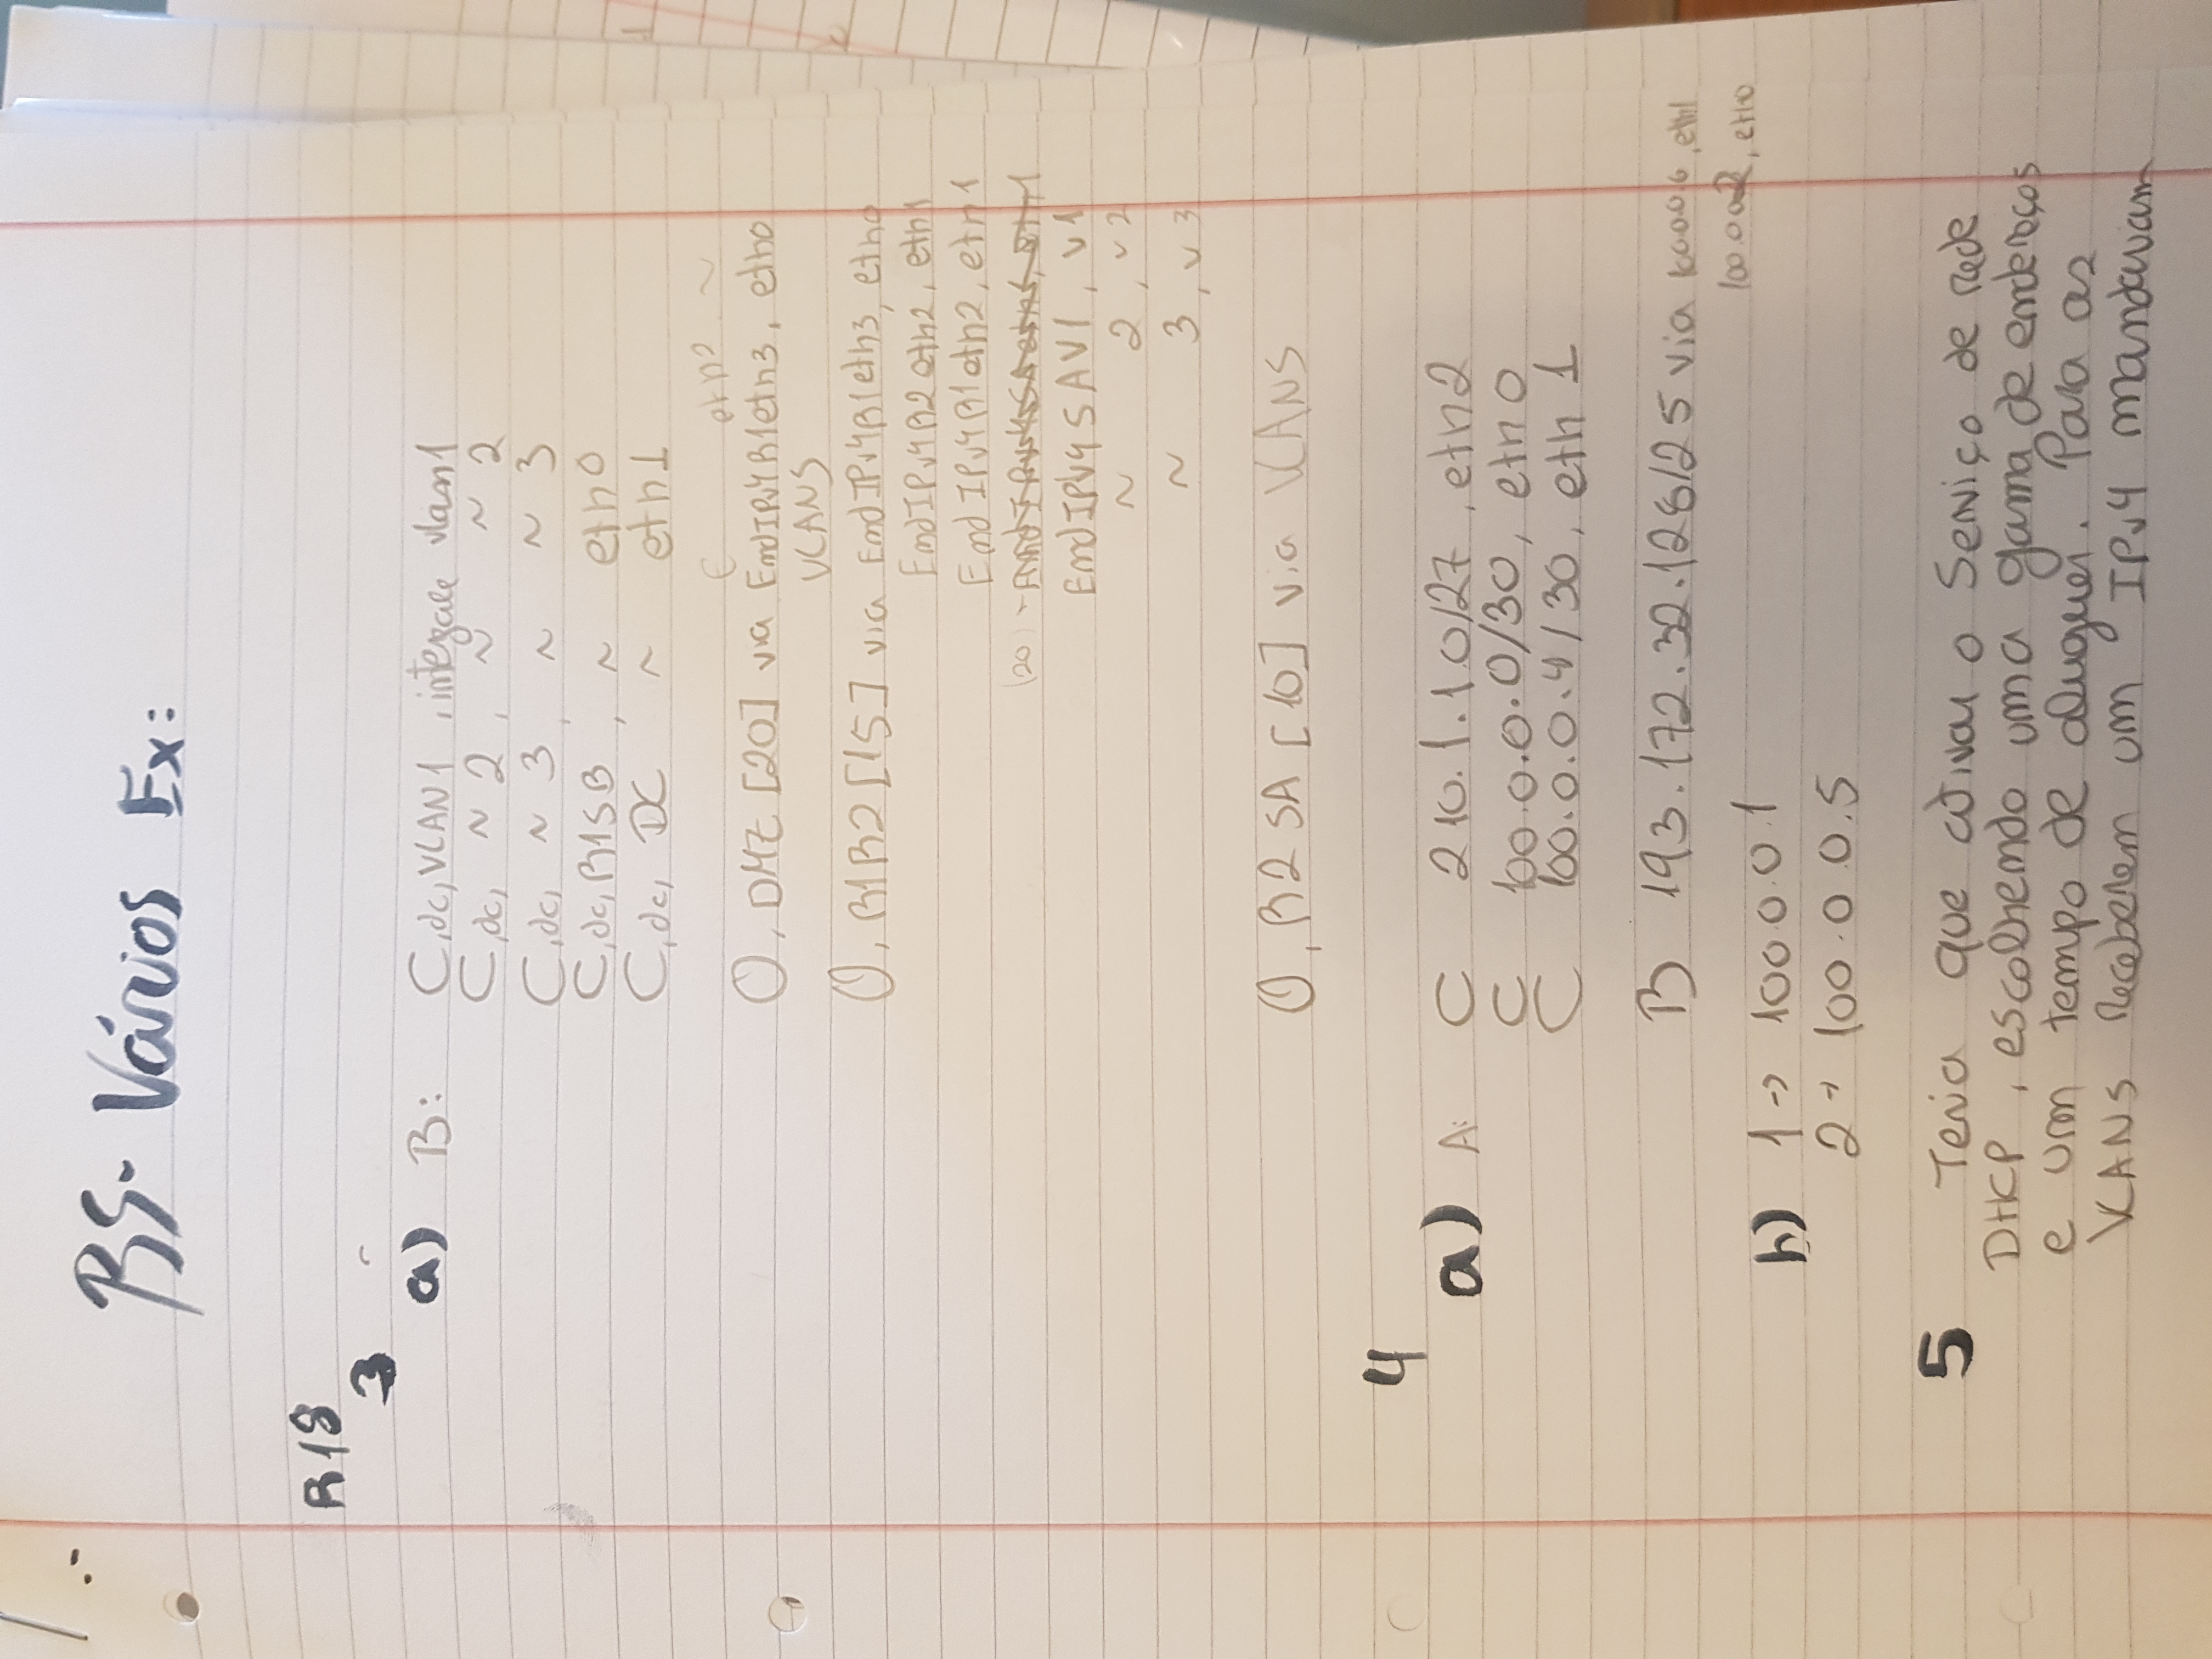 RS- Vários Ex:
R18
3
a) B: C,dc,VLAN1 , interface vlan1
C,dc, ~ 2 , ~ ~ 2
C,dc, ~ 3 , ~ ~ 3
C,dc, R1SB , ~ eth0
C,dc, DC ~ eth1
E eth2 ~
O, DMZ [20] via EndIPv4R1eth3, eth0
VLANS
O, R1R2 [15] via EndIPv4R1eth3, eth0
EndIPv4R2eth2, eth1
EndIPv4R1eth2, eth1
(20) -
EndIPv4SAV1, v1
~ 2, v2
~ 3, v3
O, R2SA [10] via VLANS
4
a) A: C 210.1.1.0/27, eth2
C 100.0.0.0/30, eth0
C 100.0.0.4/30, eth1
R 193.172.32.128/25 via 100.0.0.6, eth1
100.0.0.2, eth0
b) 1 -> 100.0.0.1
2 -> 100.0.0.5
5 Teria que ativar o Serviço de rede
DHCP, escolhendo uma gama de endereços
e um tempo de aluguer. Para as
VLANS receberem um IPv4 mandavam